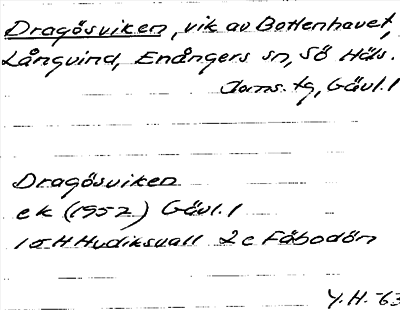 Dragösviken, vik av Bottenhavet,
Långvind, Enångers sn, Sö Häls.
doms. tg, Gävl. l
Dragösviken
ek (1952) Gävl. l
1 a H Hudiksvall 2 c Fåbodön
Y.H. -63